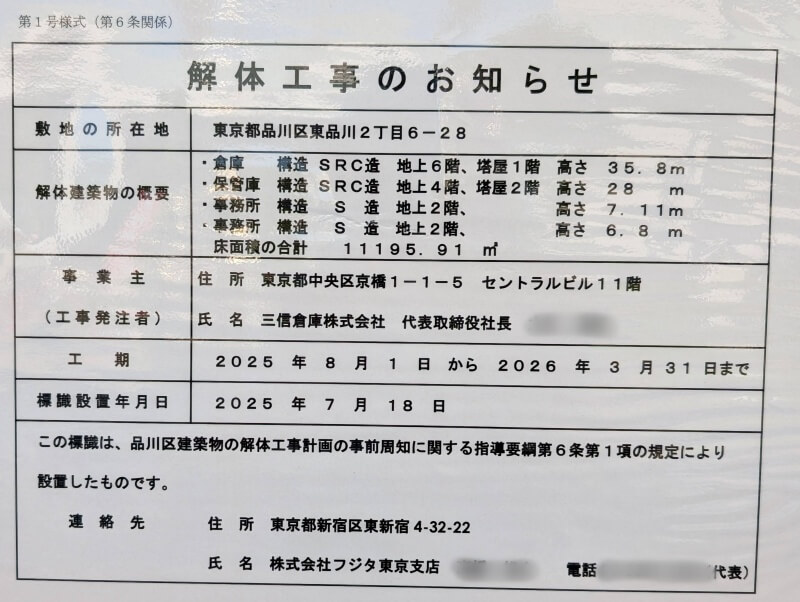 第１号様式（第６条関係）
解体工事のお知らせ
敷地の所在地　東京都品川区東品川２丁目６－２８
解体建築物の概要
・倉庫　構造 ＳＲＣ造　地上６階、塔屋１階　高さ　３５．８ｍ
・保管庫　構造 ＳＲＣ造　地上４階、塔屋２階　高さ　２８　ｍ
・事務所　構造　Ｓ　造　地上２階、　高さ　７．１１ｍ
・事務所　構造　Ｓ　造　地上２階、　高さ　６．８　ｍ
床面積の合計　１１１９５．９１　㎡
事業主　住所　東京都中央区京橋１－１－５　セントラルビル１１階
（工事発注者）　氏名　三信倉庫株式会社　代表取締役社長
工期　２０２５　年　８　月　１　日　から　２０２６　年　３　月　３１　日まで
標識設置年月日　２０２５　年　７　月　１８　日
この標識は、品川区建築物の解体工事計画の事前周知に関する指導要綱第６条第１項の規定により
設置したものです。
連絡先　住所　東京都新宿区東新宿 4-32-22
氏名　株式会社フジタ東京支店　電話　代表）